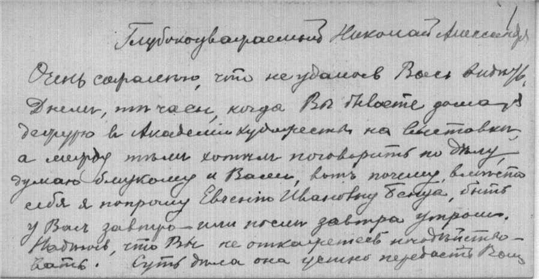 Глубокоуважаемый Николай Александр
Очень сожалею, что не удалось Васъ видѣть.
Днемъ, тѣ часы, когда Вы бываете дома я
дежурю в Академіи художествъ на выставкѣ,
а между тѣмъ хотѣли поговорить по дѣлу,
думаю близкому и Вамъ, вотъ почему, вмѣсто
себя я попрошу Евгенію Ивановну быть
у Васъ завтра — или послѣ завтра утромъ.
Надѣюсь, что Вы не откажетесь
вать. Суть дѣла она устно передастъ Вамъ